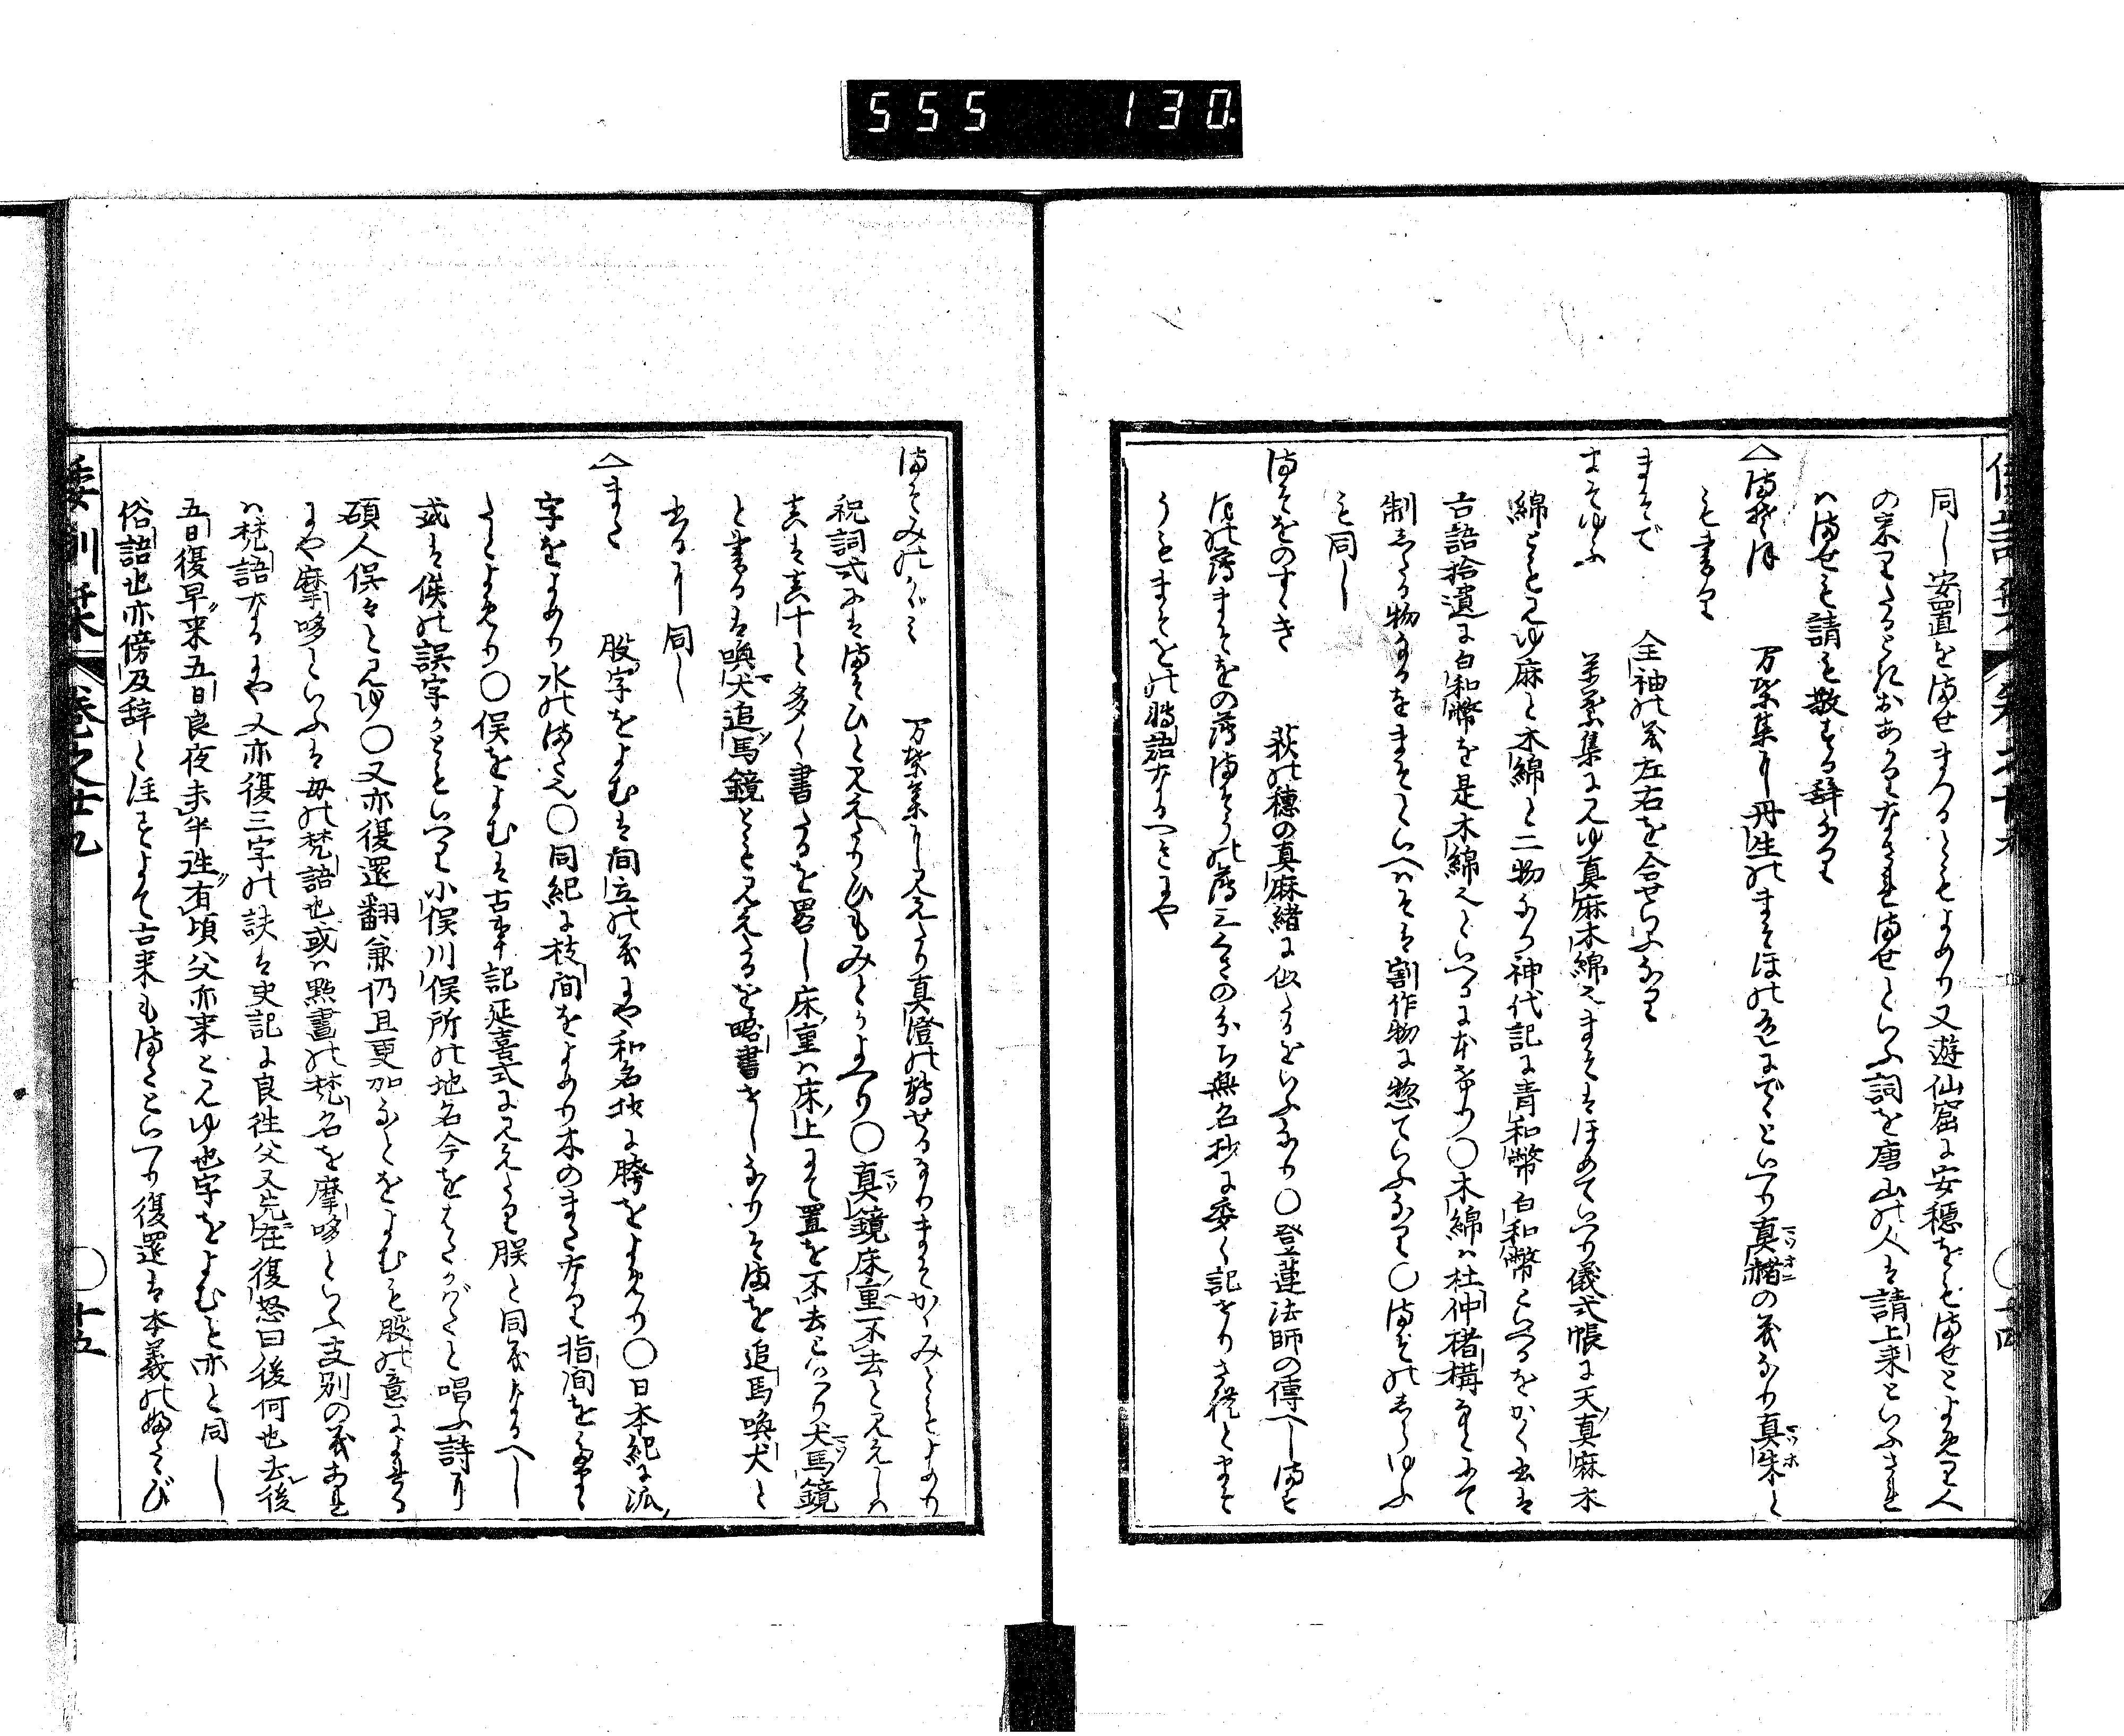 555 130
同し安置をませまつるともよめり又遊仙窟に安穏をもませとよめり人
の来りたるときおあかりなされませといふ詞を唐山の人は請上来といふされ
はませも請も敬する辞なり
△まそほ 万葉集に丹生のまそほの色にでゝといへり真赭の義なり真朱と
も書り
まそで 全袖の義左右を合せいふなり
まそゆふ 万葉集に見ゆ真麻木綿也まそはほめていへり儀式帳に天真麻木
綿とも見ゆ麻と木綿と二物なり神代記に青和幣白和幣といへるをかく云は
古語拾遺に白和幣を是木綿也といへるに本けり○木綿は杜仲楮構なとにて
制したる物なるをまそといへはそは割作物に惣ていふなり○まそのしらゆふ
も同し
まそをのすゝき 萩の穂の真麻緒に似たるをいふなり○登蓮法師の傳へします
ほの薄まそをの薄まそうの薄三くさのわち無名抄に委く記せりされとます
うもまそをの轉語なるへきにや
まそみのかゞみ 万葉集に見えたり真澄の轉せるなりまそかゝみともよめり
祝詞式にはまそひと見えたりひもみとかよへり○真鏡床重不去と見えしは
真は真十と多く書たるを畧し床重は床上にて置を不去とはいへり犬馬鏡
と書るは喚犬追馬鏡とも見えたるを略書せしなりそまを追馬喚犬と
書るに同し
△また 股字をよむは間立の義にや和名抄に胯をよめり○日本紀に派
字をよめり水のまた也○同紀に枝間をよめり木のまたなり指間をたなま
たとよめり○俣をよむは古事記延喜式に見えたり股と同義なるへし
或は俟の誤字かともいへり小俣川俣所の地名今をはたかばたと唱ふ詩に
碩人俣々と見ゆ○又亦復還翻兼仍且更加なとをよむも股の意によれる
にや摩哆といふは毋の梵語也或は點畫の梵名を摩哆といふ支別の義あれ
は梵語なるにや又亦復三字の訣は史記に良往父又先在復怒曰後何也去後
五日復早来五日良夜未半往有頃父亦来と見ゆ也字をよむも亦と同し
俗語也亦傍及辞と注せよて古来もまたといへり復還は本義のふたゝび
倭訓栞 巻之廿九 ○十五
○十四